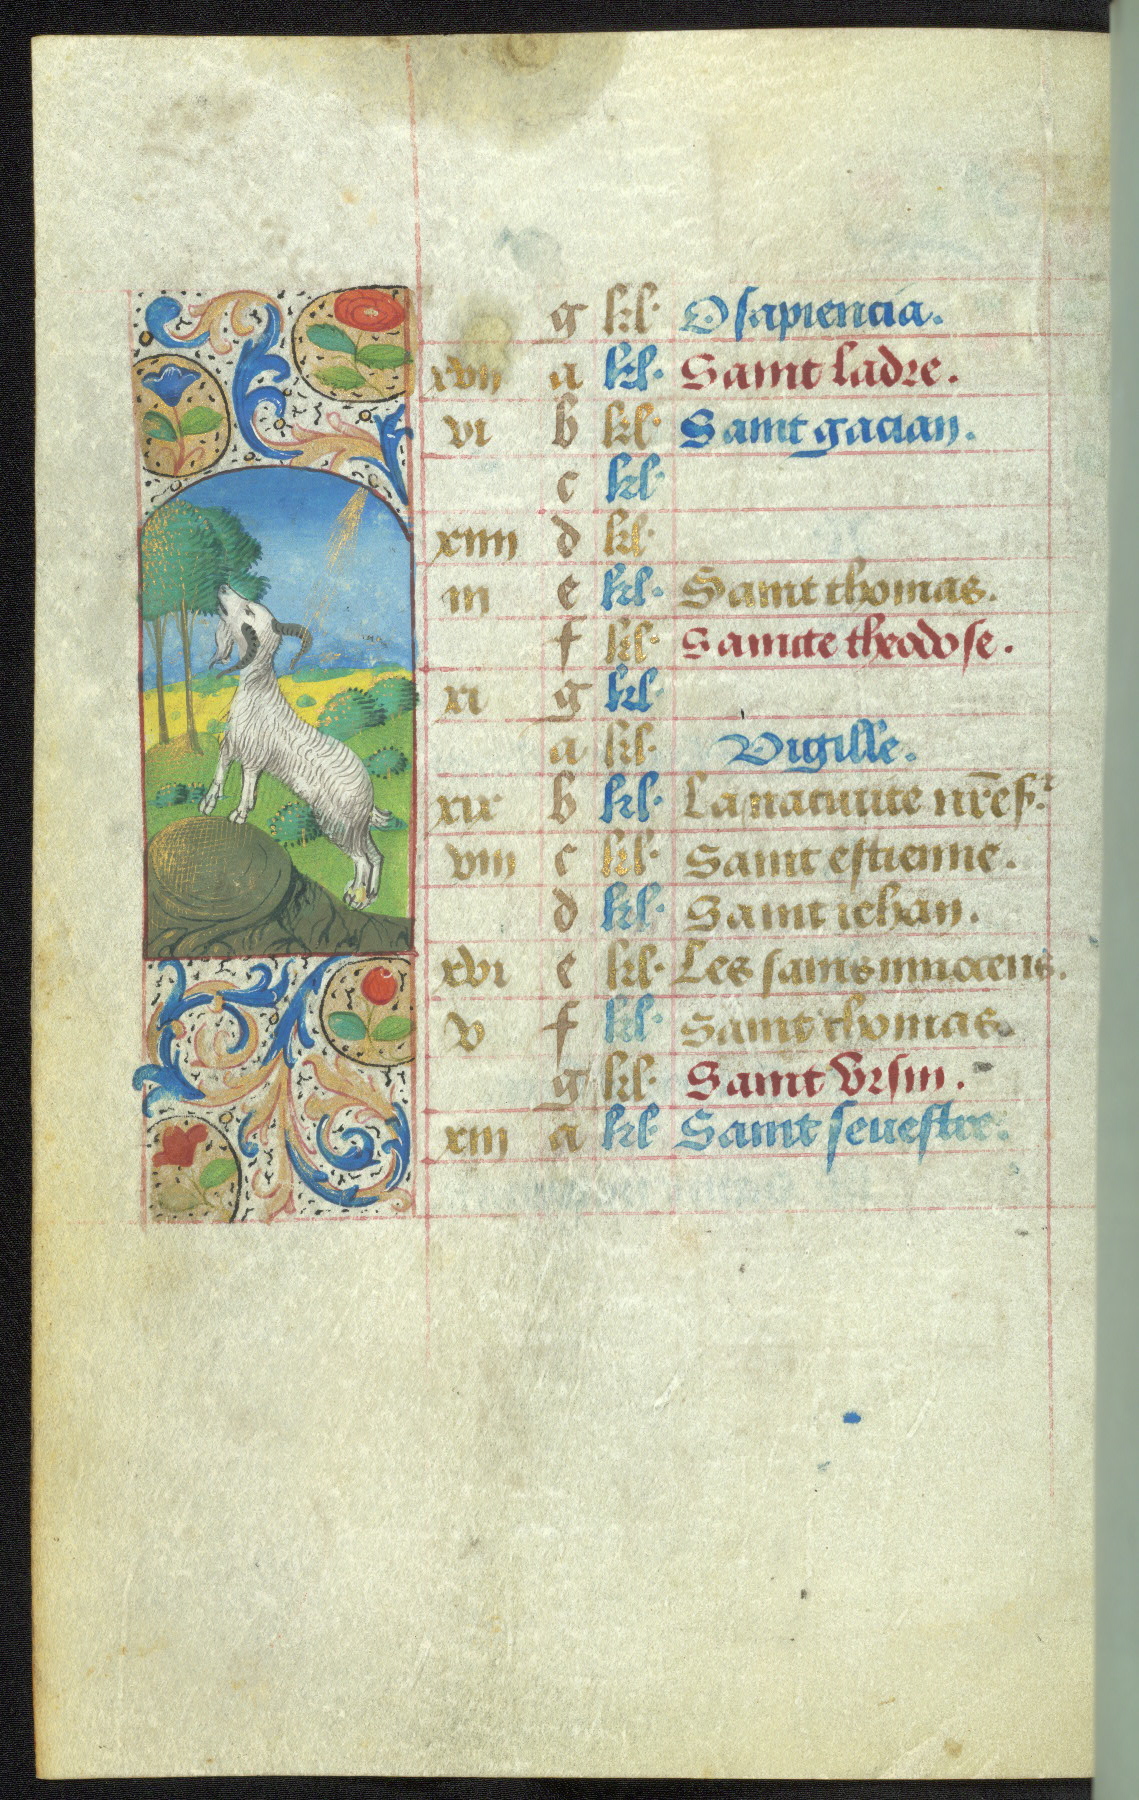 g kl· O sapiencia.
xvii a kl· Saint ladre.
vi b kl· Saint gacian.
c kl·
xiiii d kl·
iii e kl· Saint thomas.
f kl· Saincte theodose.
xi g kl·
a kl· Vigille.
xix b kl· La natiuite nr̄e sr.
viii c kl· Saint estienne.
d kl· Saint iehan.
xvi e kl· Les sains innocens.
v f kl· Saint thomas.
g kl· Saint Vrsin.
xiii a kl· Saint seuestre.